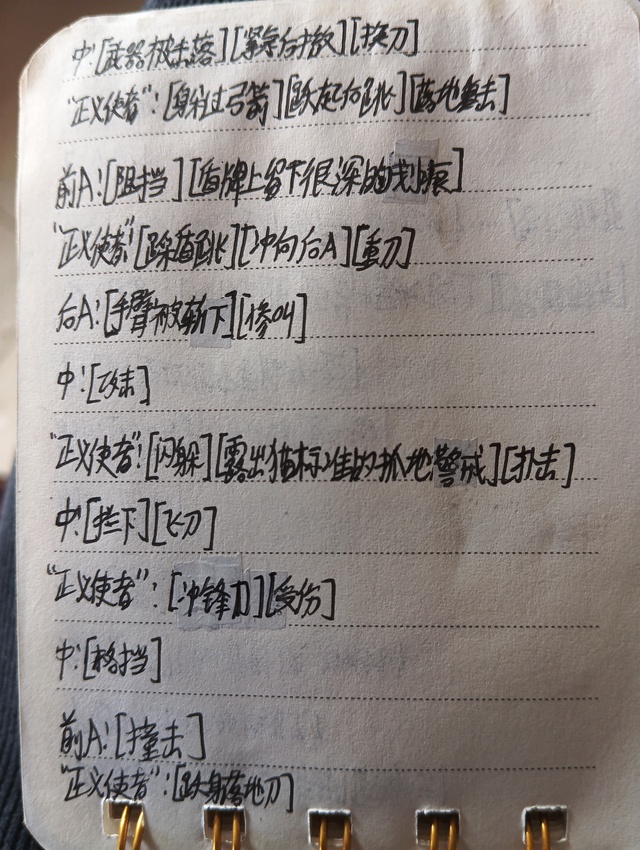 中:[武器被击落][紧急后撤][换刀]
"正义使者":[躲过弓箭][跃起后跳][落地重击]
前A:[阻挡][盾牌上留下很深的划痕]
"正义使者"[踩盾跳][冲向后A][重刀]
后A:[手臂被斩下][惨叫]
中:[攻击]
"正义使者":[闪躲][露出猫标准的抓地警戒][扑击]
中:[拦下][飞刀]
"正义使者":[冲锋刀][受伤]
中:[格挡]
前A:[撞击]
"正义使者":[跃身落地刀]